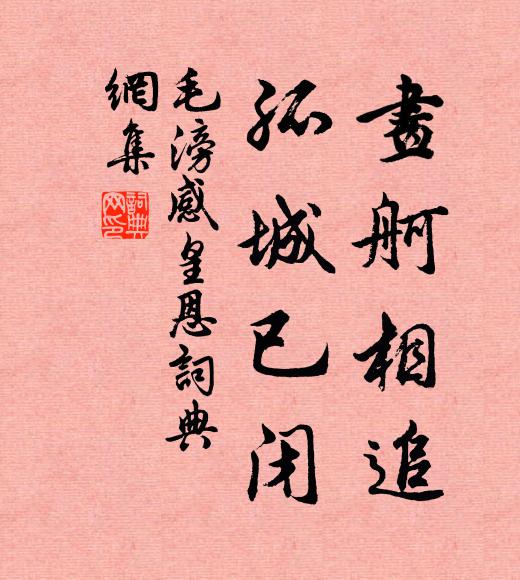 畫舸相追
孤城已闭
毛滂感皇恩詞典
網集
詞典網印